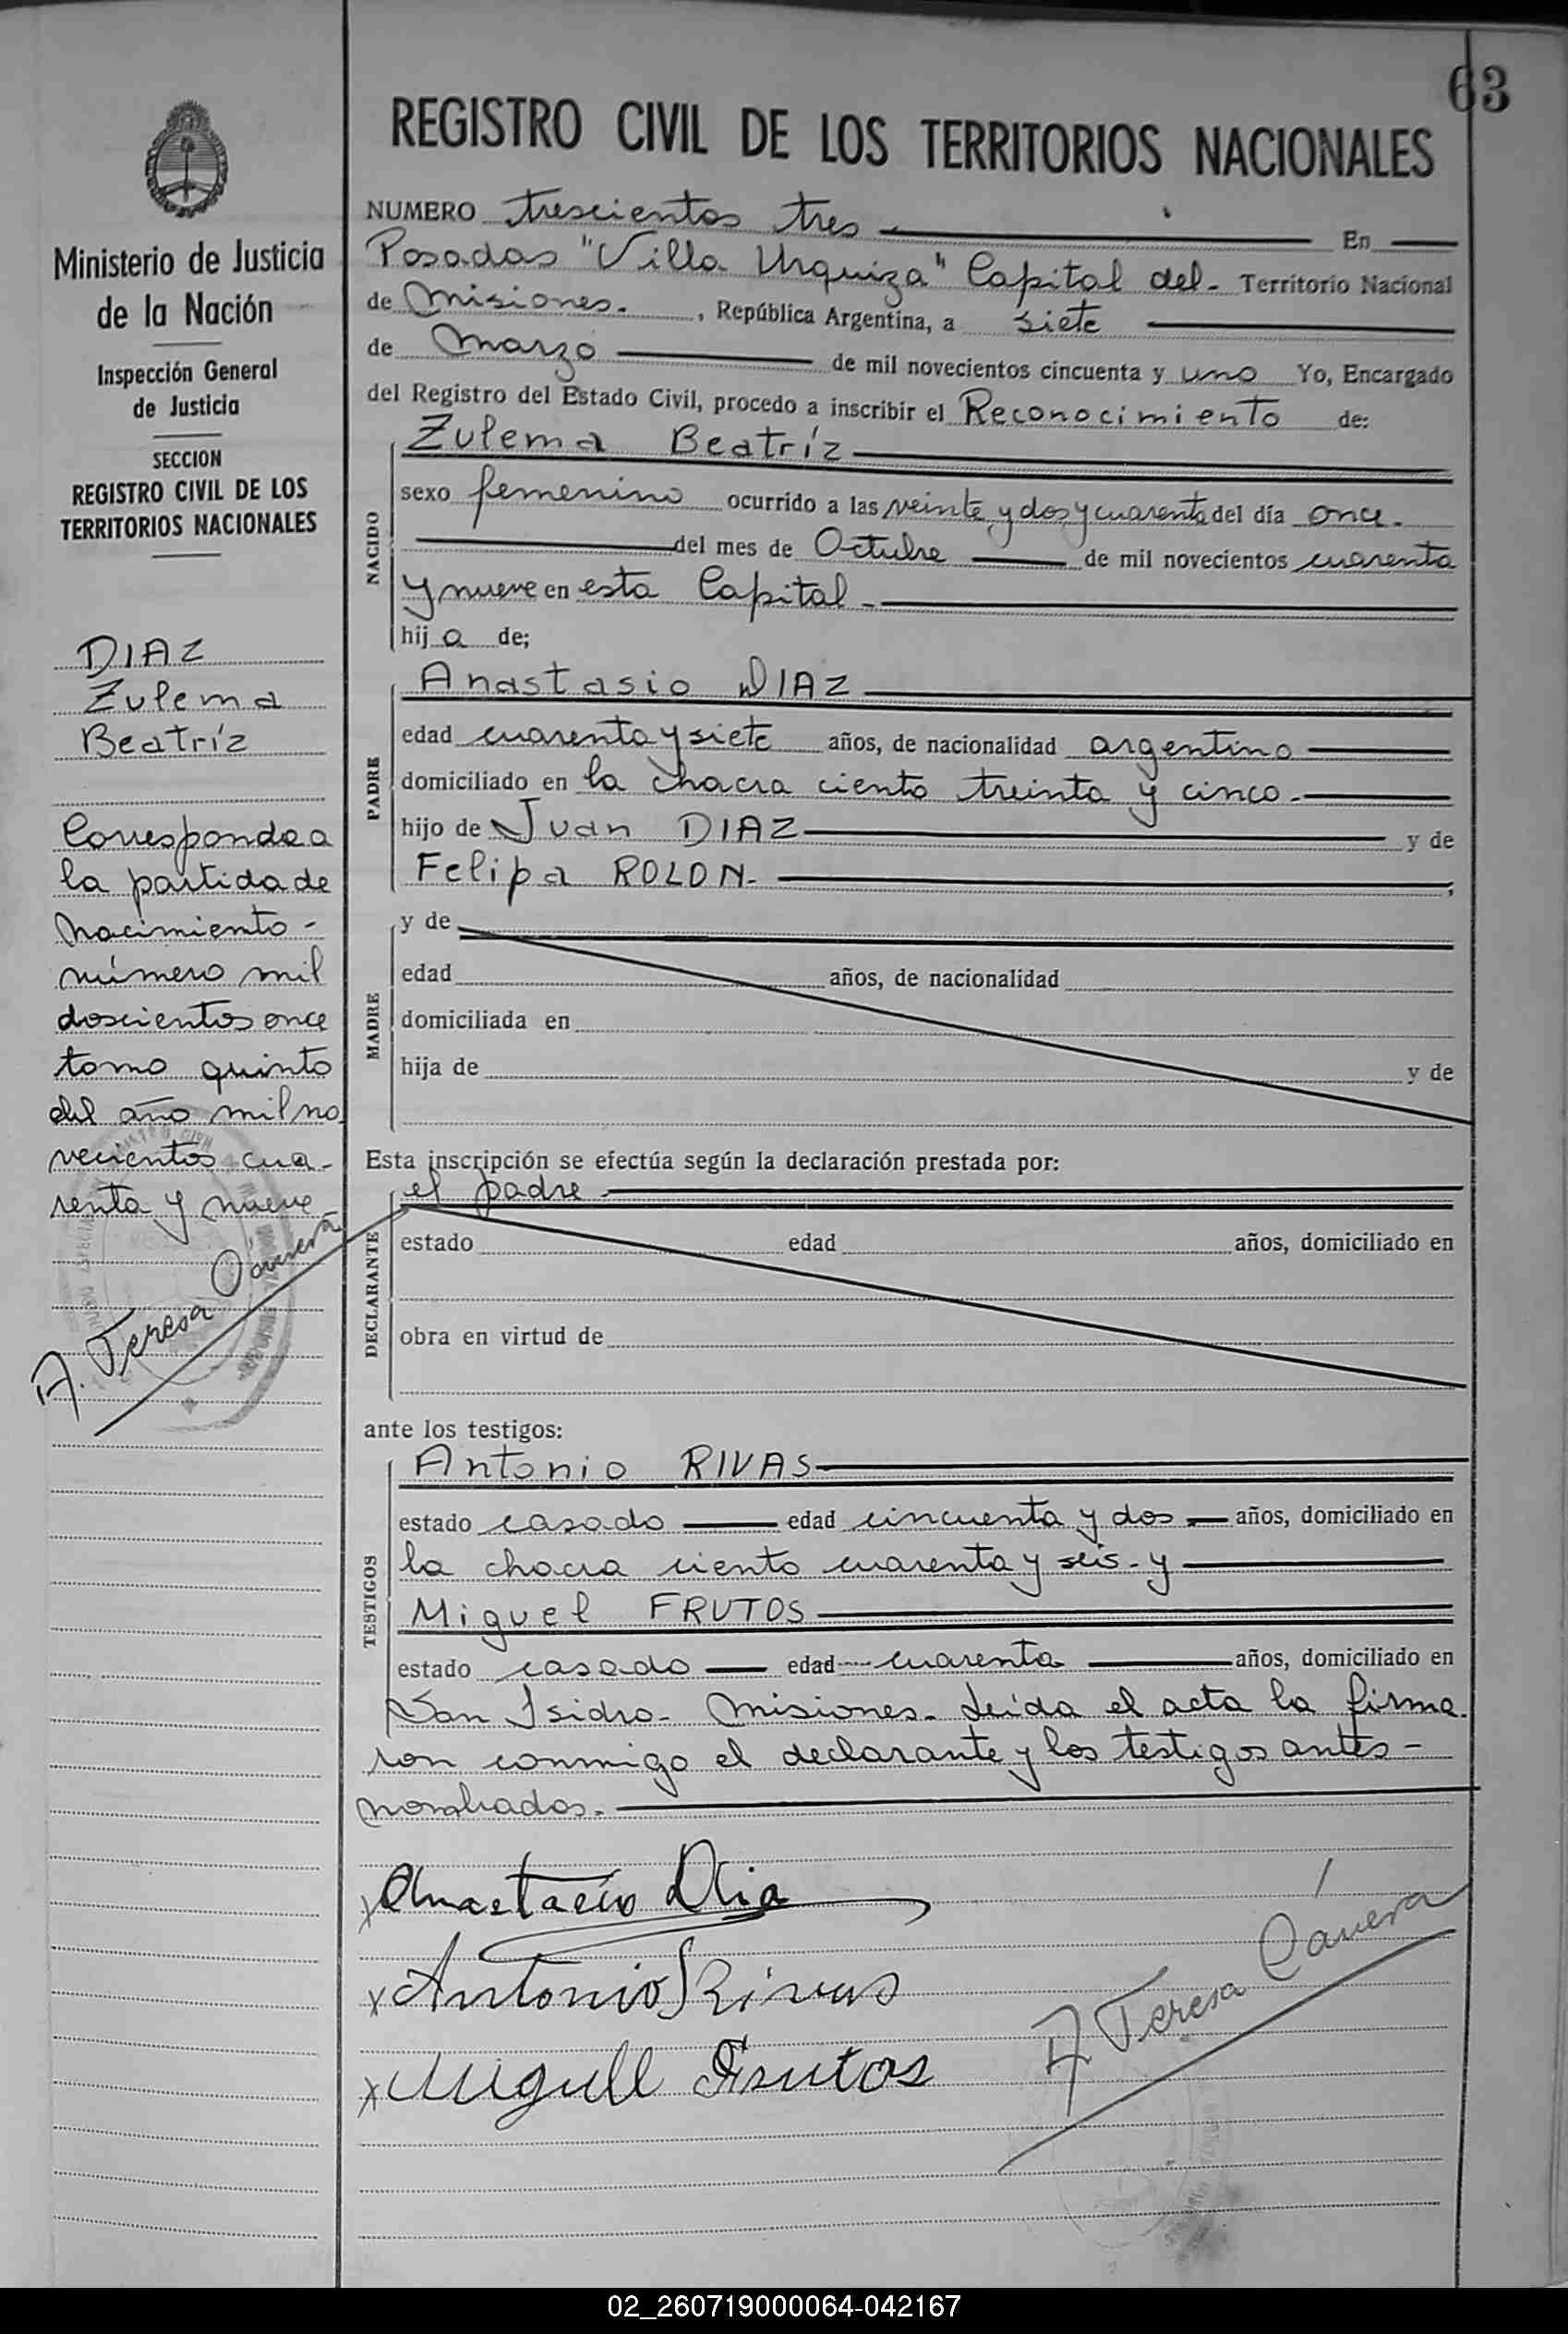 63
REGISTRO CIVIL DE LOS TERRITORIOS NACIONALES
Ministerio de Justicia
de la Nación
Inspección General
de Justicia
SECCION
REGISTRO CIVIL DE LOS
TERRITORIOS NACIONALES
DIAZ
Zulema
Beatríz
Corresponde a
la partida de
nacimiento -
número mil
doscientos once
tomo quinto
del año mil no
vecientos cua-
renta y nueve
A. Teresa
NUMERO trescientos tres En
Posadas "Villa Urquiza" Capital del - Territorio Nacional
de Misiones. , República Argentina, a siete
de Marzo de mil novecientos cincuenta y uno Yo, Encargado
del Registro del Estado Civil, procedo a inscribir el Reconocimiento de:
NACIDO
Zulema Beatríz
sexo femenino ocurrido a las veinte y dos y cuarenta del día once.
del mes de Octubre de mil novecientos cuarenta
y nueve en esta Capital -
hij a de;
PADRE
Anastasio DIAZ
edad cuarenta y siete años, de nacionalidad argentino
domiciliado en la chacra ciento treinta y cinco -
hijo de Juan DIAZ y de
Felipa ROLON - ;
MADRE
y de
edad años, de nacionalidad
domiciliada en
hija de y de
Esta inscripción se efectúa según la declaración prestada por:
DECLARANTE
el padre
estado edad años, domiciliado en
obra en virtud de
ante los testigos:
TESTIGOS
Antonio RIVAS
estado casado edad cincuenta y dos años, domiciliado en
la chacra ciento cuarenta y seis - y
Miguel FRUTOS
estado casado edad cuarenta años, domiciliado en
San Isidro - Misiones - Leída el acta la firma
ron conmigo el declarante y los testigos antes -
nombrados. -
x Anastacio Dia
x Antonio Rivas
x Miguel Frutos
A Teresa
02_260719000064-042167